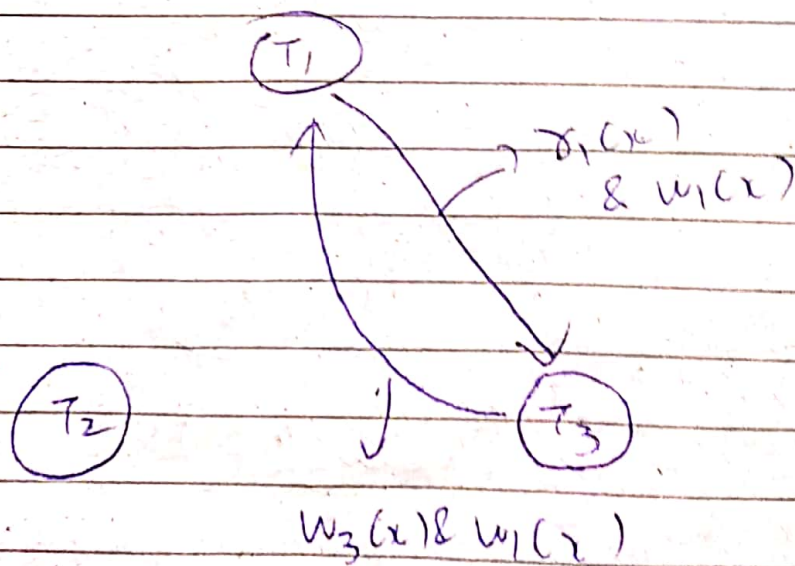 T1
r1(x)
& w1(x)
T2
T3
w3(x) & w1(x)